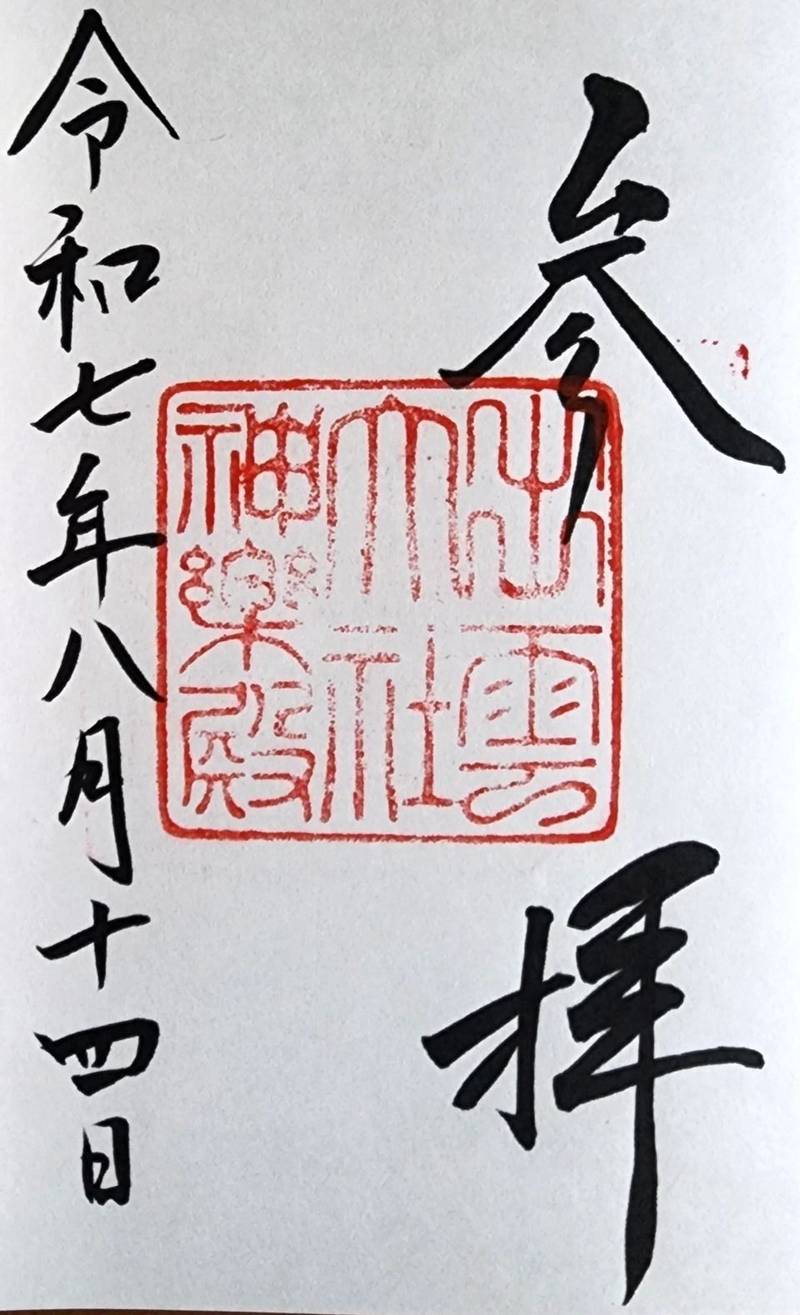 参拝
出雲
大社
神楽殿
令和七年八月十四日